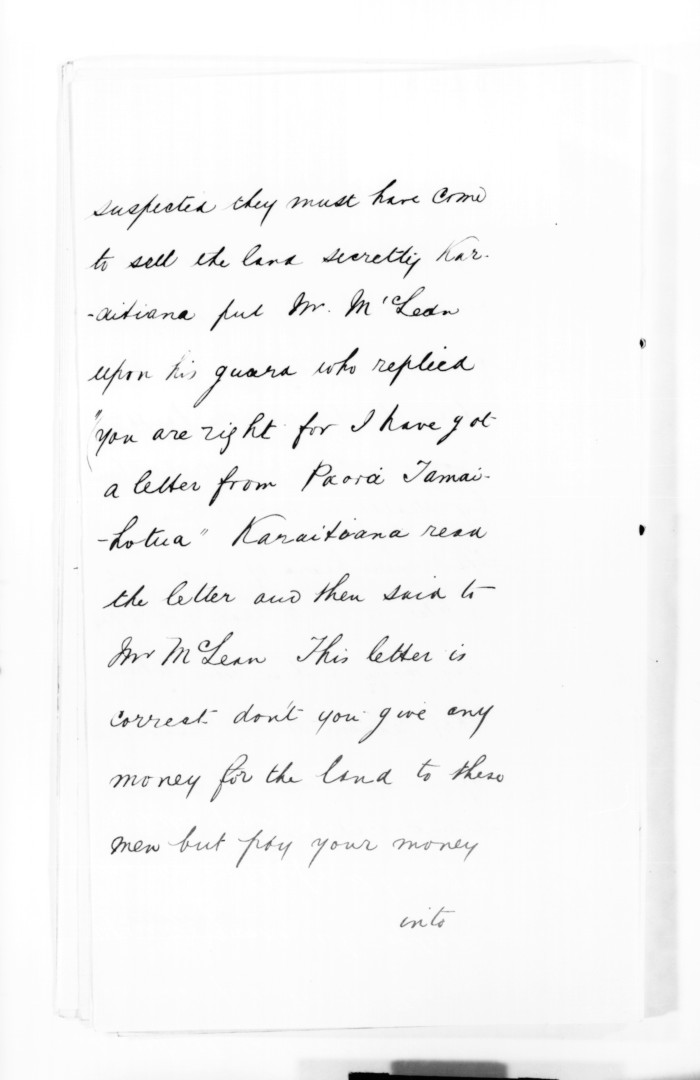 suspected they must have come
to sell the land secretly Kar-
-aitiana put Mr. M'Lean
upon his guard who replied
"you are right for I have got
a letter from Paora Tamai-
-hotua" Karaitiana read
the letter and then said to
Mr McLean This letter is
correct don't you give any
money for the land to these
men but pay your money
into